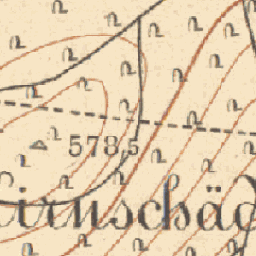 578,5
irnschäd